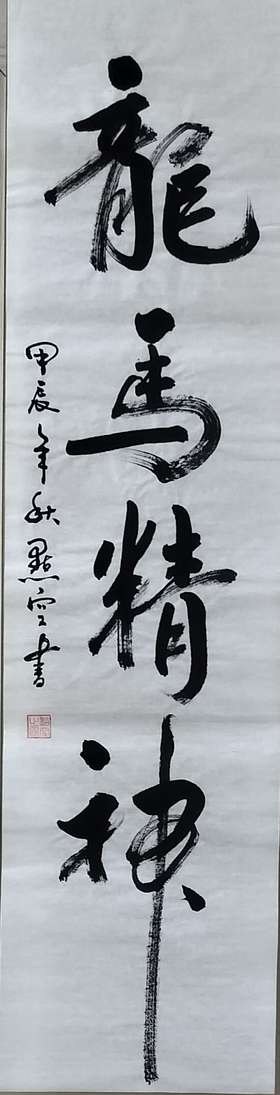 龍馬精神
甲辰年秋默空書